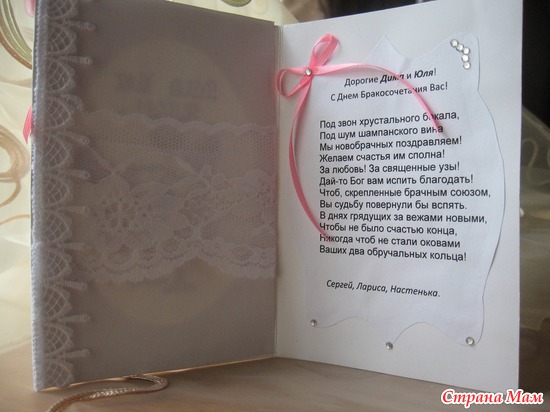 Дорогие Дима и Юля!
С Днем Бракосочетания Вас!
Под звон хрустального бокала,
Под шум шампанского вина
Мы новобрачных поздравляем!
Желаем счастья им сполна!
За любовь! За священные узы!
Дай-то Бог вам испить благодать!
Чтоб, скрепленные брачным союзом,
Вы судьбу повернули бы вспять.
В днях грядущих за вежами новыми,
Чтобы не было счастью конца,
Никогда чтоб не стали оковами
Ваших два обручальных кольца!
Сергей, Лариса, Настенька.
Страна Мам